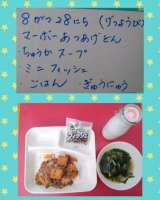 8がつ28にち (げつようび)
マーボーあつあげどん
ちゅうかスープ
ミニフィッシュ
ごはん ぎゅうにゅう